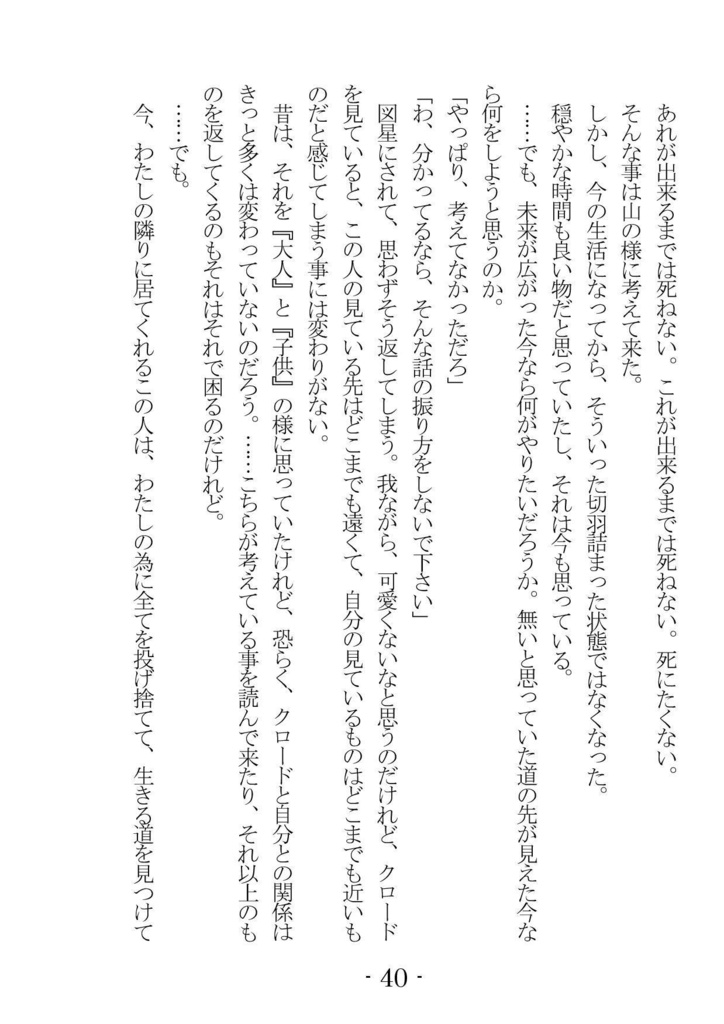 あれが出来るまでは死ねない。これが出来るまでは死ねない。死にたくない。
そんな事は山の様に考えて来た。
しかし、今の生活になってから、そういった切羽詰まった状態ではなくなった。
穏やかな時間も良い物だと思っていたし、それは今も思っている。
……でも、未来が広がった今なら何がやりたいだろうか。無いと思っていた道の先が見えた今な
ら何をしようと思うのか。
「やっぱり、考えてなかっただろ」
「わ、分かってるなら、そんな話の振り方をしないで下さい」
図星にされて、思わずそう返してしまう。我ながら、可愛くないなと思うのだけれど、クロード
を見ていると、この人の見ている先はどこまでも遠くて、自分の見ているものはどこまでも近いも
のだと感じてしまう事には変わりがない。
昔は、それを『大人』と『子供』の様に思っていたけれど、恐らく、クロードと自分との関係は
きっと多くは変わっていないのだろう。……こちらが考えている事を読んで来たり、それ以上のも
のを返してくるのもそれはそれで困るのだけれど。
……でも。
今、わたしの隣りに居てくれるこの人は、わたしの為に全てを投げ捨てて、生きる道を見つけて
- 40 -